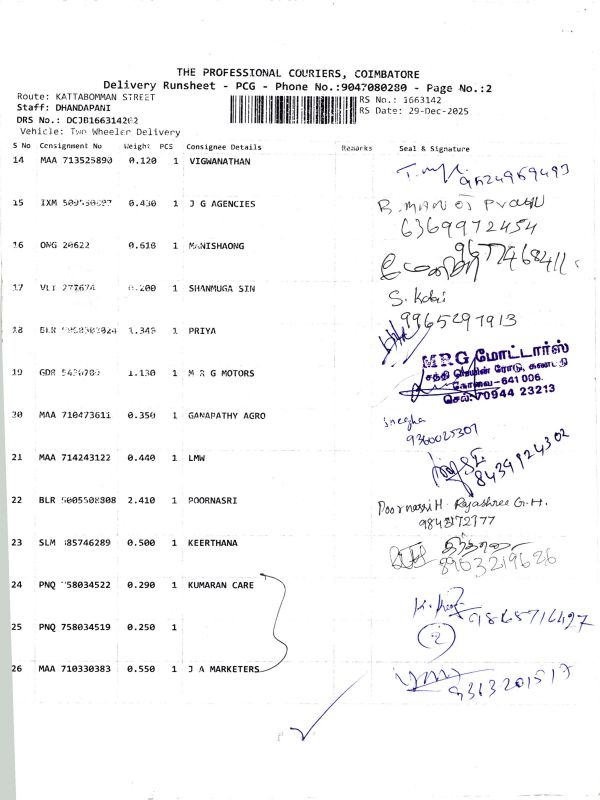 THE PROFESSIONAL COURIERS, COIMBATORE
Delivery Runsheet - PCG - Phone No.:9047080280 - Page No.:2
Route: KATTABOMMAN STREET
Staff: DHANDAPANI
DRS No.: DCJB1663142G2
Vehicle: Two Wheeler Delivery
RS No.: 1663142
RS Date: 29-Dec-2025
S No Consignment No Weight PCS Consignee Details Remarks Seal & Signature
14 MAA 713525890 0.120 1 VIGWANATHAN 9524969493
15 IXM 0.430 1 J G AGENCIES
6369972454
16 ONG 20622 0.610 1 MANISHAONG
17 VLT 0.200 1 SHANMUGA SIN S.
9965297913
18 BLR 1.345 1 PRIYA
MRG மோட்டார்ஸ்
சத்தி மெயின் ரோடு, கணபதி
கோவை-641 006.
செல்: 70944 23213
19 GDR 1.130 1 M R G MOTORS
20 MAA 710473611 0.350 1 GANAPATHY AGRO
9360025307
21 MAA 714243122 0.440 1 LMW 8439124302
22 BLR 5005508808 2.410 1 POORNASRI Poornassri H Rajashree G.H.
23 SLM 0.500 1 KEERTHANA
8963219626
24 PNQ 758034522 0.290 1 KUMARAN CARE
25 PNQ 758034519 0.250 1 2
26 MAA 710330383 0.550 1 J A MARKETERS